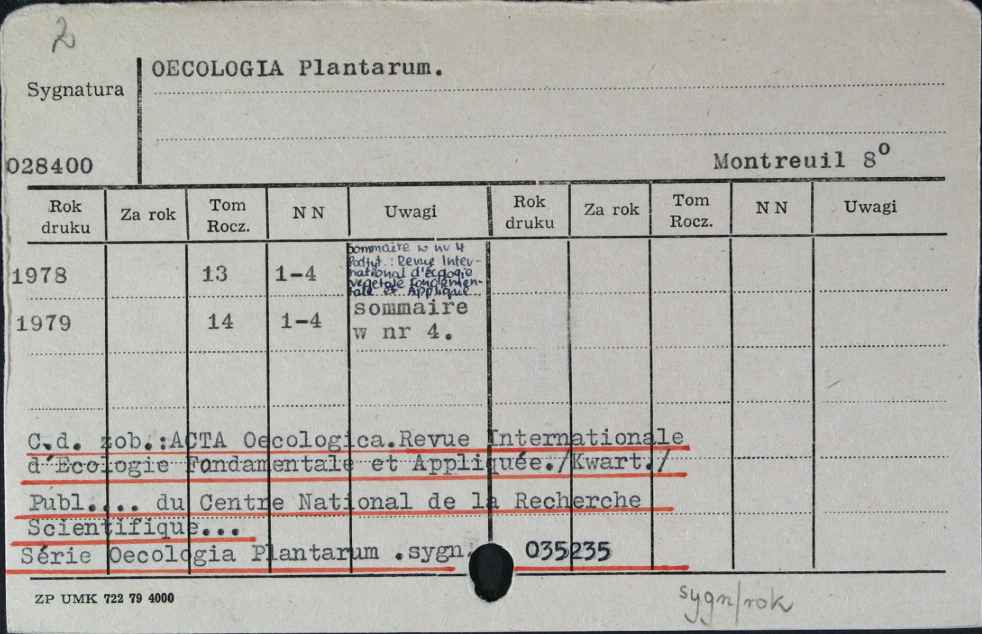 2
OECOLOGIA Plantarum.
Sygnatura
028400
Montreuil 8°
Rok druku Za rok Tom Rocz. N N Uwagi Rok druku Za rok Tom Rocz. N N Uwagi
sommaire w nr 4
Podtyt.: Revue Inter-
national d'écologie
vegetale fondamen-
tale et Appliquée
1978 13 1-4
1979 14 1-4 sommaire
w nr 4.
C.d. zob.:ACTA Oecologica.Revue Internationale
d'Ecologie Fondamentale et Appliquée./Kwart./
Publ.... du Centre National de la Recherche
Scientifique...
Série Oecologia Plantarum .sygn. 035235
ZP UMK 722 79 4000
sygn/rok